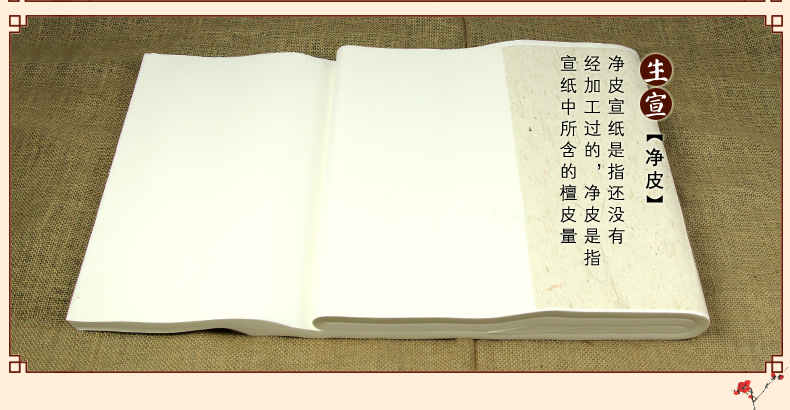 生宣
【净皮】
净皮宣纸是指还没有
经加工过的，净皮是指
宣纸中所含的檀皮量